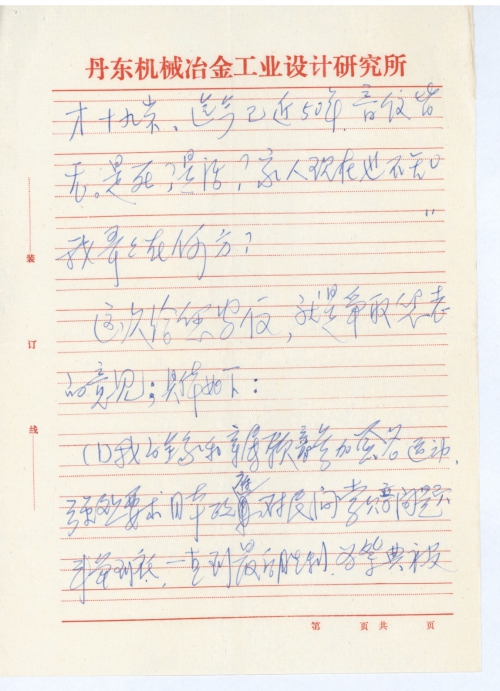 丹东机械冶金工业设计研究所
才十九岁，迄今已近50年，音信皆
无。是死？是活？家人现在也不
我哥哥在何方？
这次给您写信，就是争取
的意见；具体如下：
(1)我的全家和亲属愿意参加签名运动，
强烈要求日本政府对民间赔问题
斗争到底，一直到最后胜利。为祭典被
装
订
线
第 页共 页